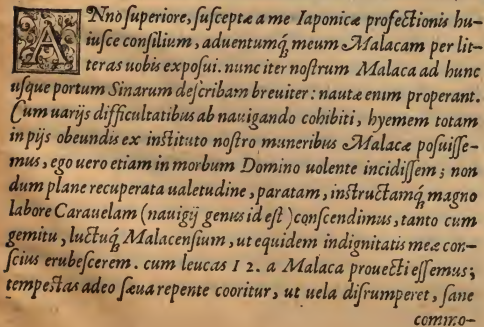 ANno superiore, susceptæ a me Iaponicæ profectionis hu-
iusce consilium, aduentumq́; meum Malacam per lit-
teras uobis exposui. nunc iter nostrum Malaca ad hunc
usque portum Sinarum describam breuiter: nautæ enim properant.
Cum uarijs difficultatibus ab nauigando cohibiti, hyemem totam
in pijs obeundis ex instituto nostro muneribus Malacæ posuisse-
mus, ego uero etiam in morbum Domino uolente incidissem; non
dum plane recuperata ualetudine, paratam, instructamq́; magno
labore Carauelam (nauigij genus id est) conscendimus, tanto cum
gemitu, luctuq́; Malacensium, ut equidem indignitatis meæ con-
scius erubescerem. cum leucas 12. a Malaca prouecti essemus;
tempestas adeo sæua repente cooritur, ut uela disrumperet, sane
commo-